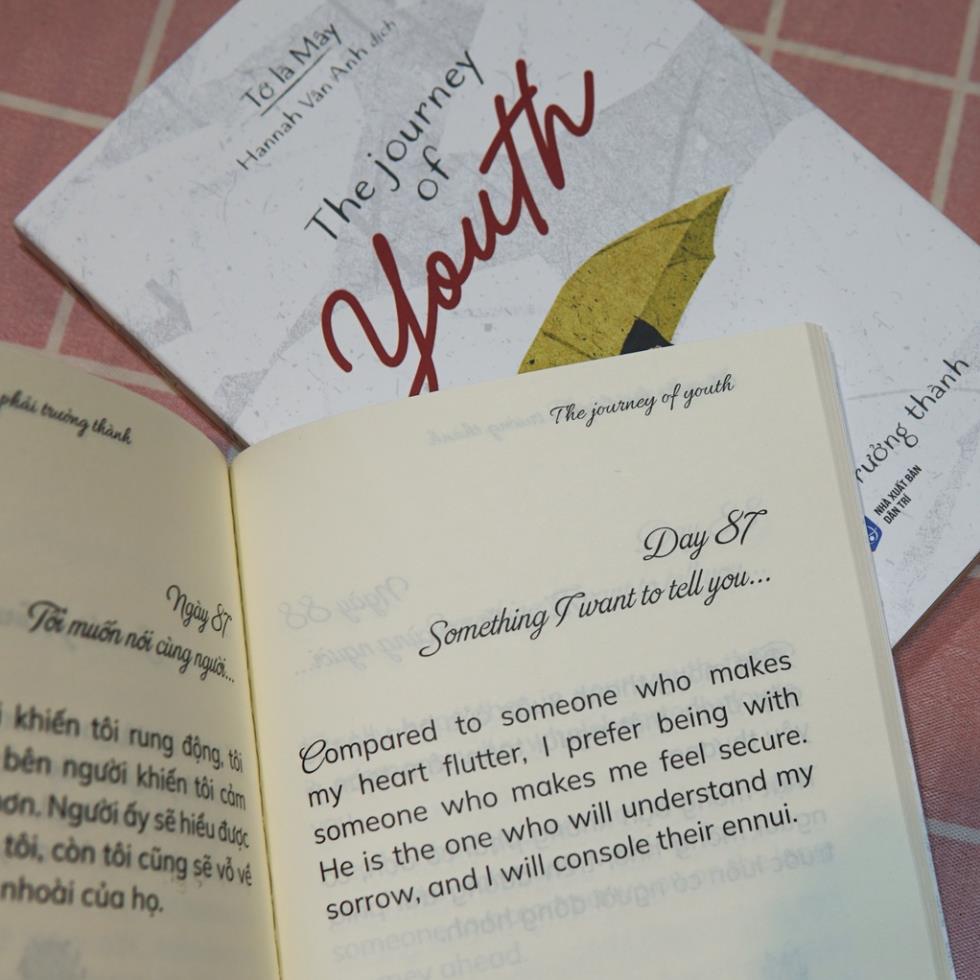 Tớ là Mây
Hannah Vân Anh dịch
The journey
of
Youth
rưởng thành
NHÀ XUẤT BẢN
DÂN TRÍ
phải trưởng thành
Ngày 87
Tôi muốn nói cùng người...
khiến tôi rung động, tôi
bên người khiến tôi cảm
hơn. Người ấy sẽ hiểu được
tôi, còn tôi cũng sẽ vỗ về
nhoài của họ.
The journey of youth
Day 87
Something I want to tell you...
Compared to someone who makes
my heart flutter, I prefer being with
someone who makes me feel secure.
He is the one who will understand my
sorrow, and I will console their ennui.